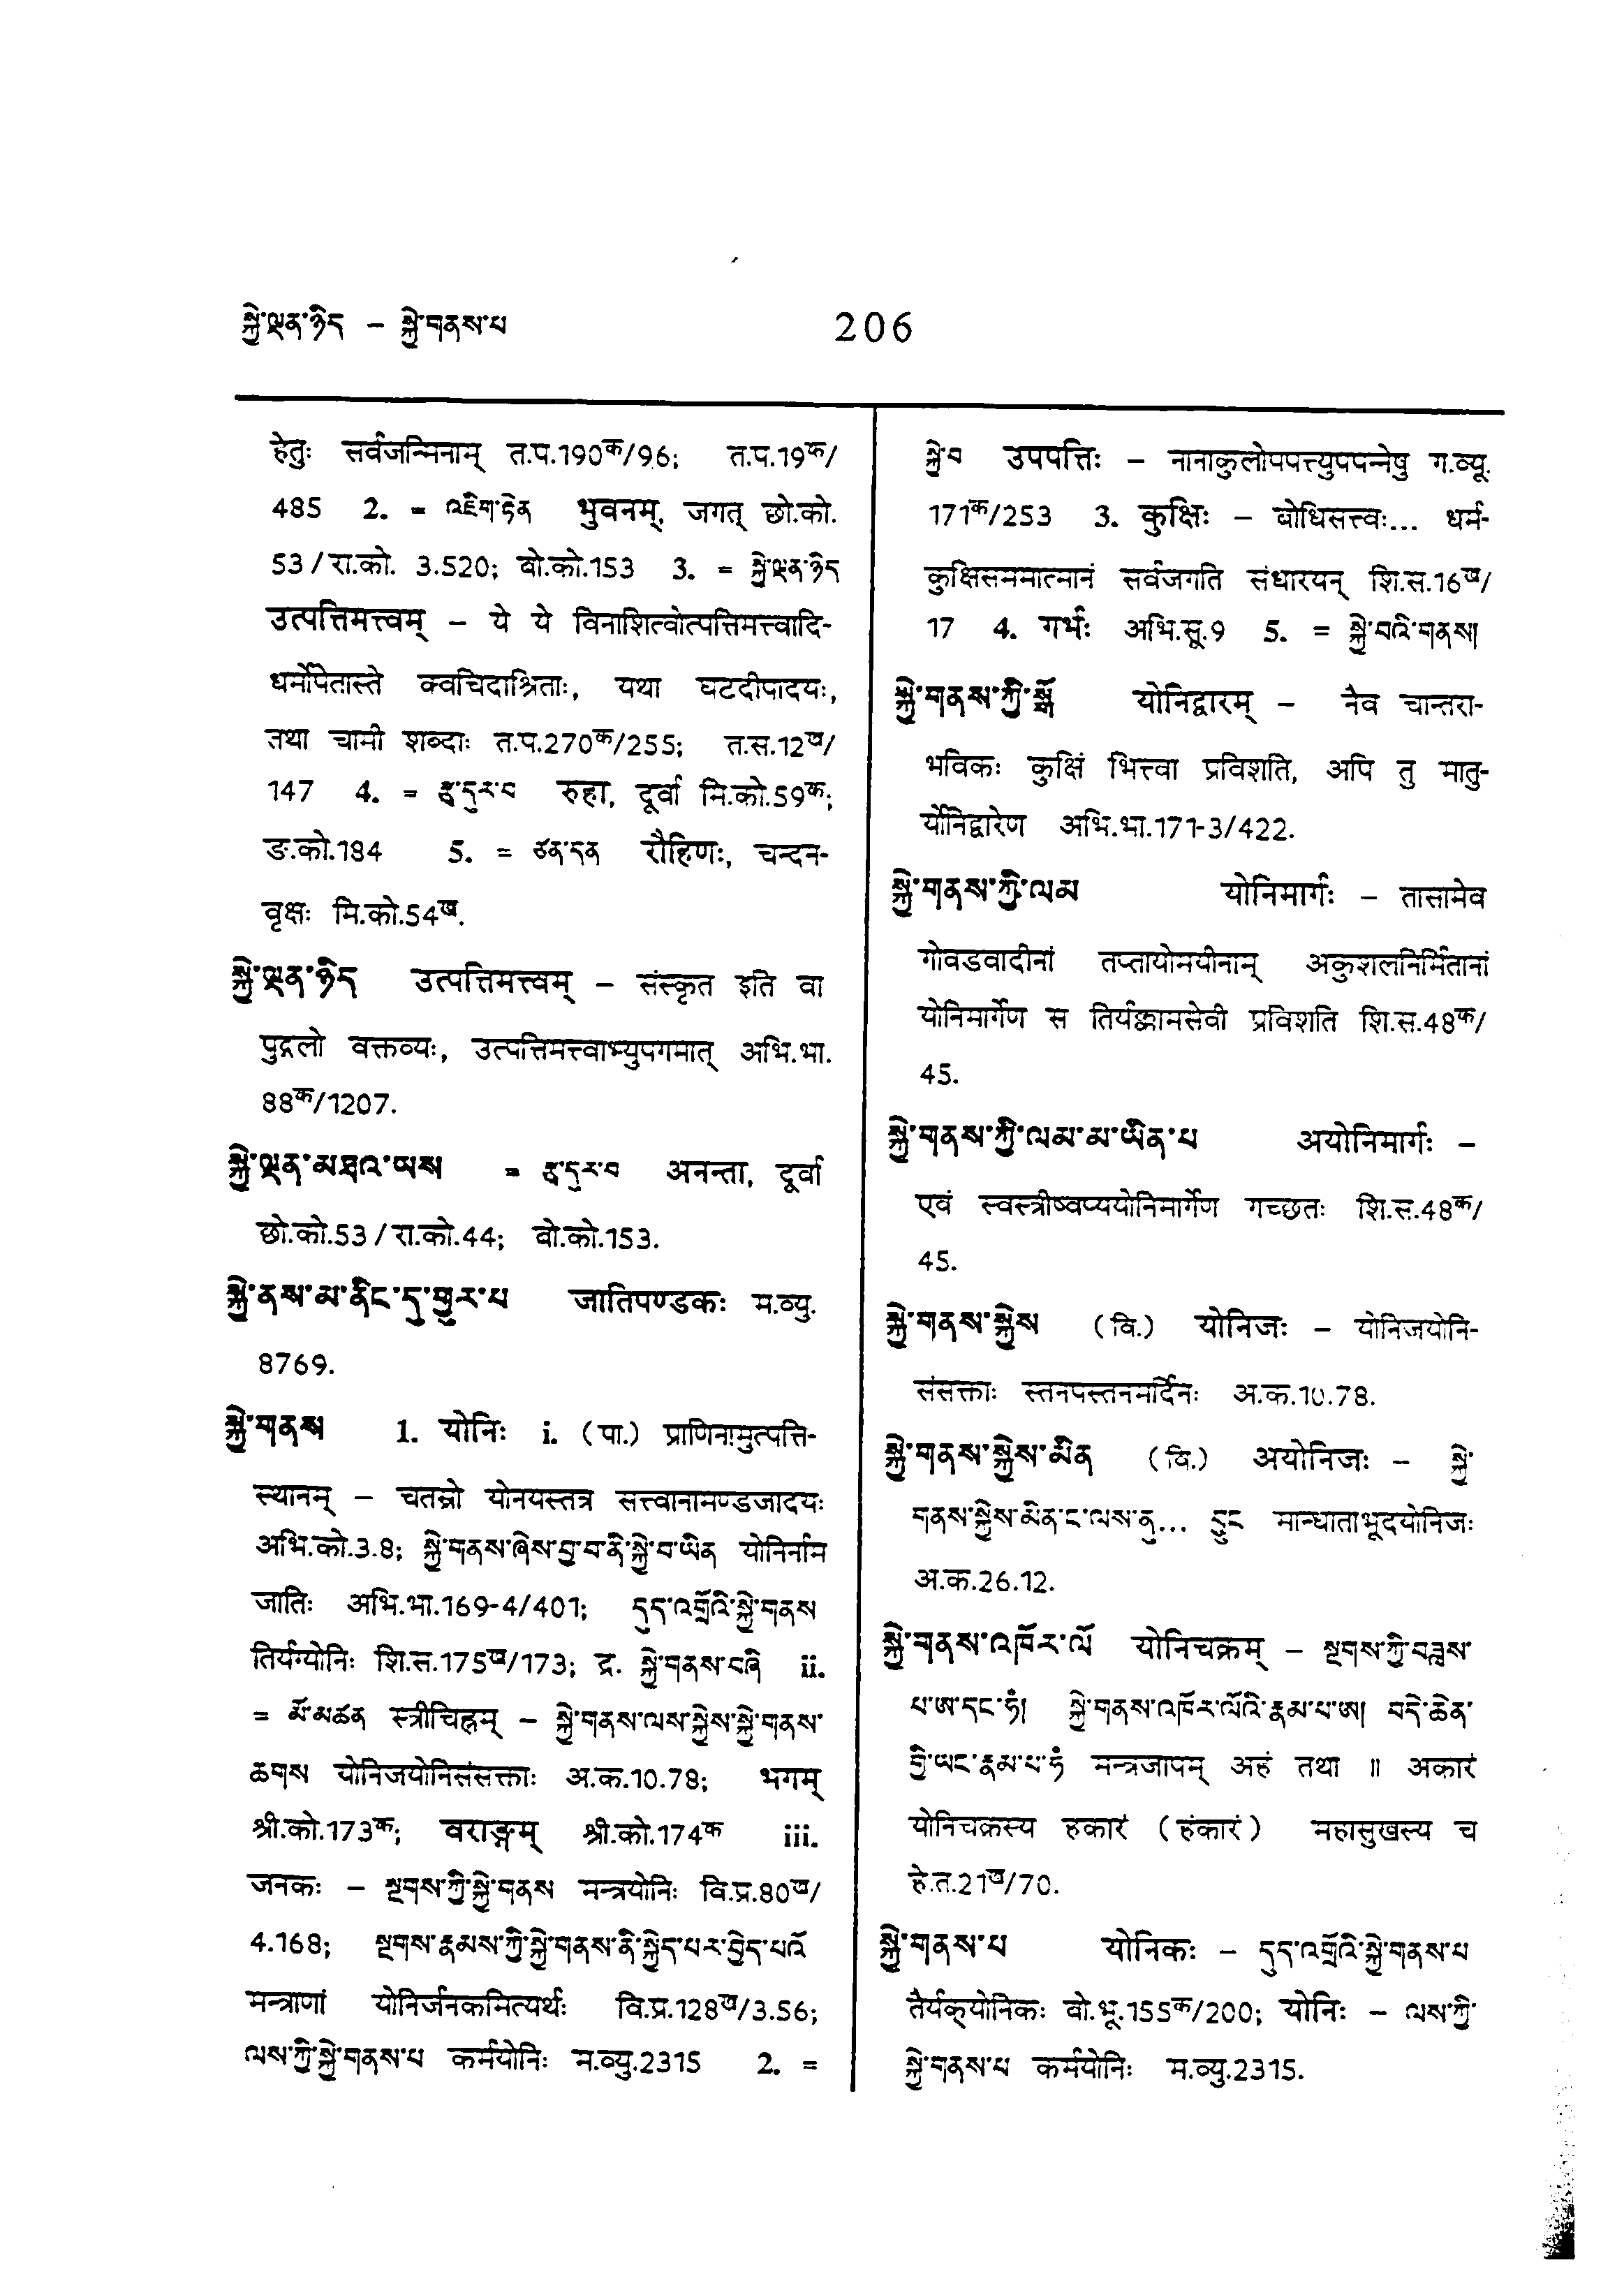 སྐྱེ་ལྡན་ཉིད – སྐྱེ་གནས་པ
206
हेतुः सर्वजन्मिनाम् त.प.190क/96; त.प.19क/
485 2. = འཇིག་རྟེན भुवनम्, जगत् छो.को.
53/रा.को. 3.520; बो.को.153 3. = སྐྱེ་ལྡན་ཉིད
उत्पत्तिमत्त्वम् – ये ये विनाशित्वोत्पत्तिमत्त्वादि-
धर्मोपेतास्ते क्वचिदाश्रिताः, यथा घटदीपादयः,
तथा चामी शब्दाः त.प.270क/255; त.स.12ख/
147 4. = རྩྭ་དུར་བ रुहा, दूर्वा मि.को.59क;
ङ.को.184 5. = ཙན་དན रौहिणः, चन्दन-
वृक्षः मि.को.54ख.
སྐྱེ་ལྡན་ཉིད उत्पत्तिमत्त्वम् – संस्कृत इति वा
पुद्गलो वक्तव्यः, उत्पत्तिमत्त्वाभ्युपगमात् अभि.भा.
88क/1207.
སྐྱེ་ལྡན་མཐའ་ཡས = རྩྭ་དུར་བ अनन्ता, दूर्वा
छो.को.53/रा.को.44; बो.को.153.
སྐྱེ་ནས་མ་ནིང་དུ་གྱུར་པ जातिपण्डकः म.व्यु.
8769.
སྐྱེ་གནས 1. योनिः i. (पा.) प्राणिनामुत्पत्ति-
स्थानम् – चतस्रो योनयस्तत्र सत्त्वानामण्डजादयः
अभि.को.3.8; སྐྱེ་གནས་ཞེས་བྱ་བ་ནི་སྐྱེ་བ་ཡིན योनिर्नाम
जातिः अभि.भा.169-4/401; དུད་འགྲོའི་སྐྱེ་གནས
तिर्यग्योनिः शि.स.175ख/173; द्र. སྐྱེ་གནས་བཞི ii.
= མོ་མཚན स्त्रीचिह्नम् – སྐྱེ་གནས་ལས་སྐྱེས་སྐྱེ་གནས་
ཆགས योनिजयोनिसंसक्ताः अ.क.10.78; भगम्
श्री.को.173क; वराङ्गम् श्री.को.174क iii.
जनकः – སྔགས་ཀྱི་སྐྱེ་གནས मन्त्रयोनिः वि.प्र.80ख/
4.168; སྔགས་རྣམས་ཀྱི་སྐྱེ་གནས་ནི་སྐྱེད་པར་བྱེད་པའོ
मन्त्राणां योनिर्जनकमित्यर्थः वि.प्र.128ख/3.56;
ལས་ཀྱི་སྐྱེ་གནས་པ कर्मयोनिः म.व्यु.2315 2. =
སྐྱེ་བ उपपत्तिः – नानाकुलोपपत्त्युपपन्नेषु ग.व्यू.
171क/253 3. कुक्षिः – बोधिसत्त्वः... धर्म-
कुक्षिसममात्मानं सर्वजगति संधारयन् शि.स.16ख/
17 4. गर्भः अभि.सू.9 5. = སྐྱེ་བའི་གནས།
སྐྱེ་གནས་ཀྱི་སྒོ योनिद्वारम् – नैव चान्तरा-
भविकः कुक्षिं भित्त्वा प्रविशति, अपि तु मातु-
र्योनिद्वारेण अभि.भा.171-3/422.
སྐྱེ་གནས་ཀྱི་ལམ योनिमार्गः – तासामेव
गोवडवादीनां तप्तायोमयीनाम् अकुशलनिर्मितानां
योनिमार्गेण स तिर्यक्कामसेवी प्रविशति शि.स.48क/
45.
སྐྱེ་གནས་ཀྱི་ལམ་མ་ཡིན་པ अयोनिमार्गः –
एवं स्वस्त्रीष्वप्ययोनिमार्गेण गच्छतः शि.स.48क/
45.
སྐྱེ་གནས་སྐྱེས (वि.) योनिजः – योनिजयोनि-
संसक्ताः स्तनपस्तनमर्दिनः अ.क.10.78.
སྐྱེ་གནས་སྐྱེས་མིན (वि.) अयोनिजः – སྐྱེ་
གནས་སྐྱེས་མིན་ང་ལས་ནུ... བྱུང मान्धाताभूदयोनिजः
अ.क.26.12.
སྐྱེ་གནས་འཁོར་ལོ योनिचक्रम् – སྔགས་ཀྱི་བཟླས་
པ་ཨ་དང་ཧཾ། སྐྱེ་གནས་འཁོར་ལོའི་རྣམ་པ་ཨ། བདེ་ཆེན་
གྱི་ཡང་རྣམ་པ་ཧཾ मन्त्रजापम् अहं तथा ॥ अकारं
योनिचक्रस्य हकारं (हंकारं) महासुखस्य च
हे.त.21ख/70.
སྐྱེ་གནས་པ योनिकः – དུད་འགྲོའི་སྐྱེ་གནས་པ
तैर्यक्योनिकः बो.भू.155क/200; योनिः – ལས་ཀྱི་
སྐྱེ་གནས་པ कर्मयोनिः म.व्यु.2315.